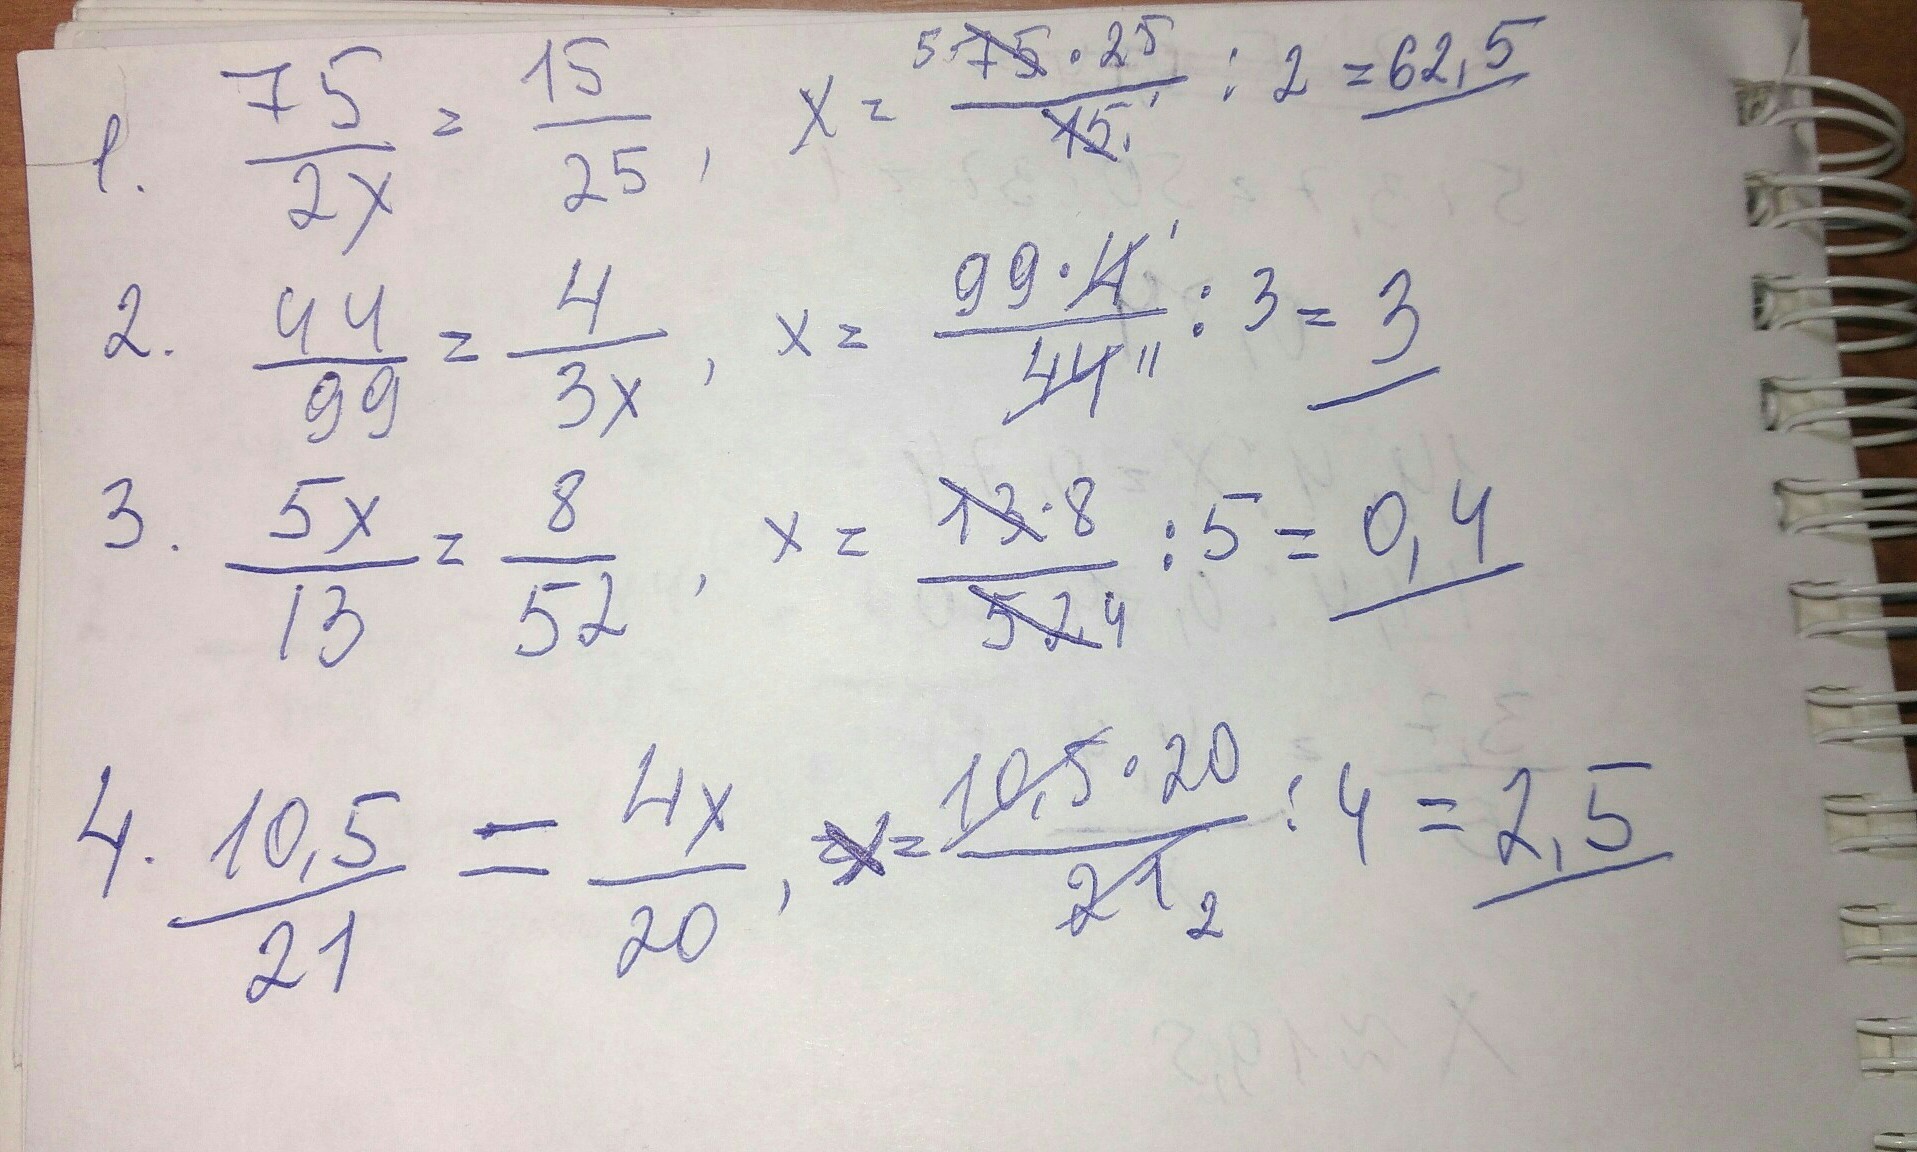 1. 75/2x = 15/25, x = 5 75·25/15 1 : 2 = 62,5
2. 44/99 = 4/3x, x = 99·4 1/44 11 : 3 = 3
3. 5x/13 = 8/52, x = 13·8/52 4 : 5 = 0,4
4. 10,5/21 = 4x/20, x = 10,5·20/21 2 : 4 = 2,5